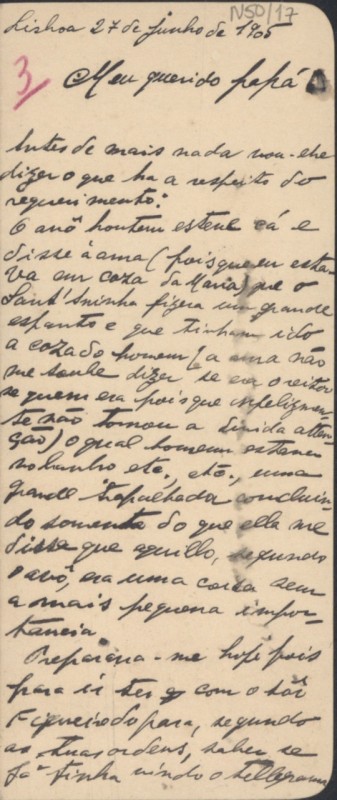 N50/17
Lisboa 27 de junho de 1905
3
Meu querido papá
Antes de mais nada vou-lhe
dizer o que ha a respeito do
requerimento:
O avô hontem esteve cá e
disse á ama (pois que eu esta-
va em caza da Maria) que o
Sant'Aninha fizera um grande
espanto e que tinham ido
a caza do homem (a ama não
me soube dizer se era o reitor
se quem era pois que infelizmen-
te não tomou a divida atten-
ção) o qual homem estava
no banho etc., etc., uma
grande trapalhada concluin-
do somente do que ella me
disse que aquillo, segundo
o avô, era uma coisa sem
a mais pequena impor-
tancia.
Preparava-me hoje pois
para ir ter com o Sõr
Figueiredo para, segundo
as suas ordens, saber se
já tinha vindo o telegramma